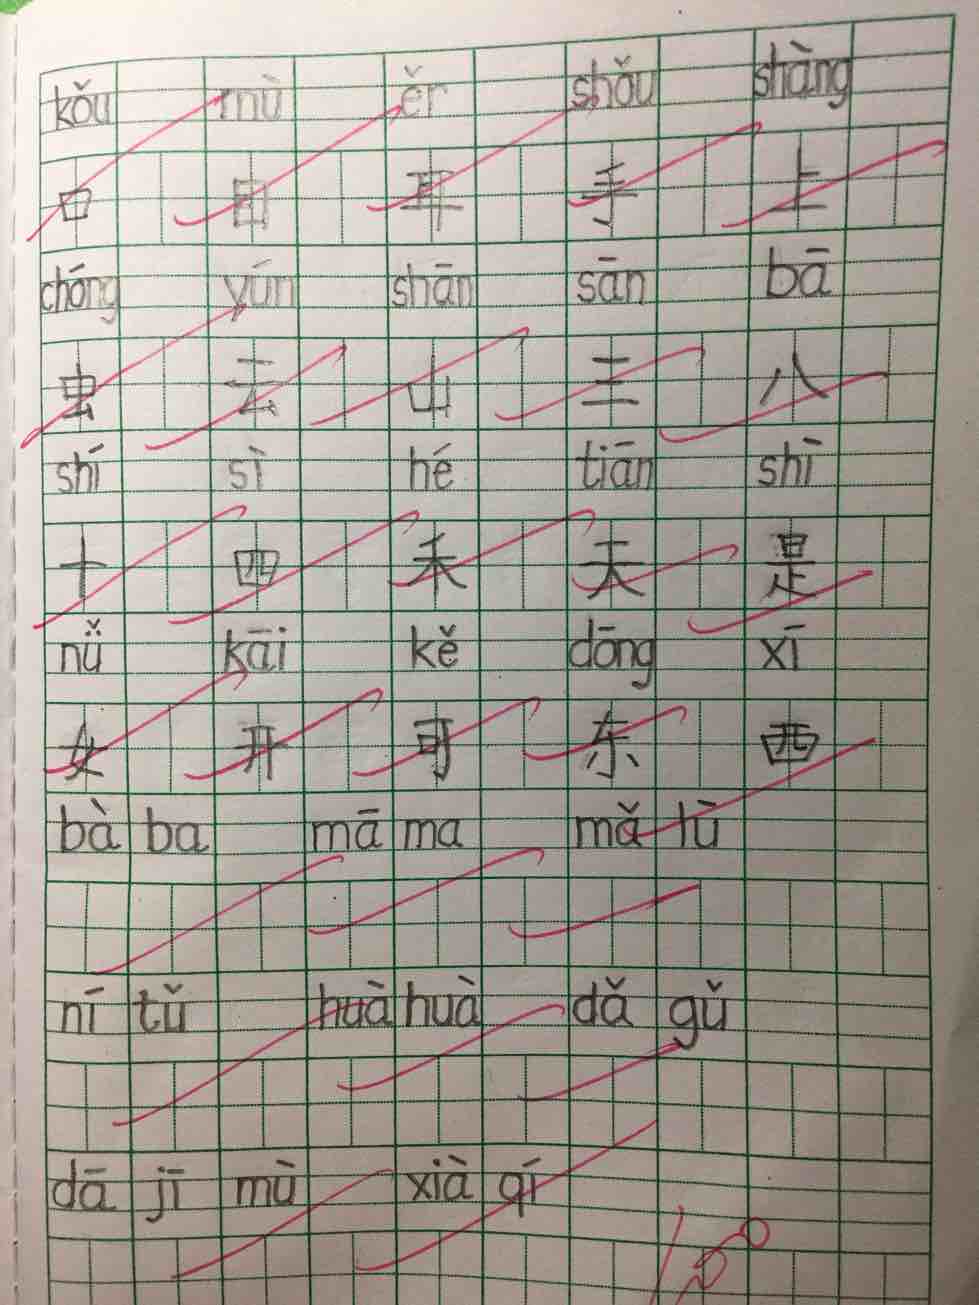 kǒu mù ěr shǒu shàng
口 目 耳 手 上
chóng yún shān sān bā
虫 云 山 三 八
shí sì hé tiān shì
十 四 禾 天 是
nǚ kāi kě dōng xī
女 开 可 东 西
bà ba mā ma mǎ lù
ní tǔ huà huà dǎ gǔ
dā jī mù xià qí
100